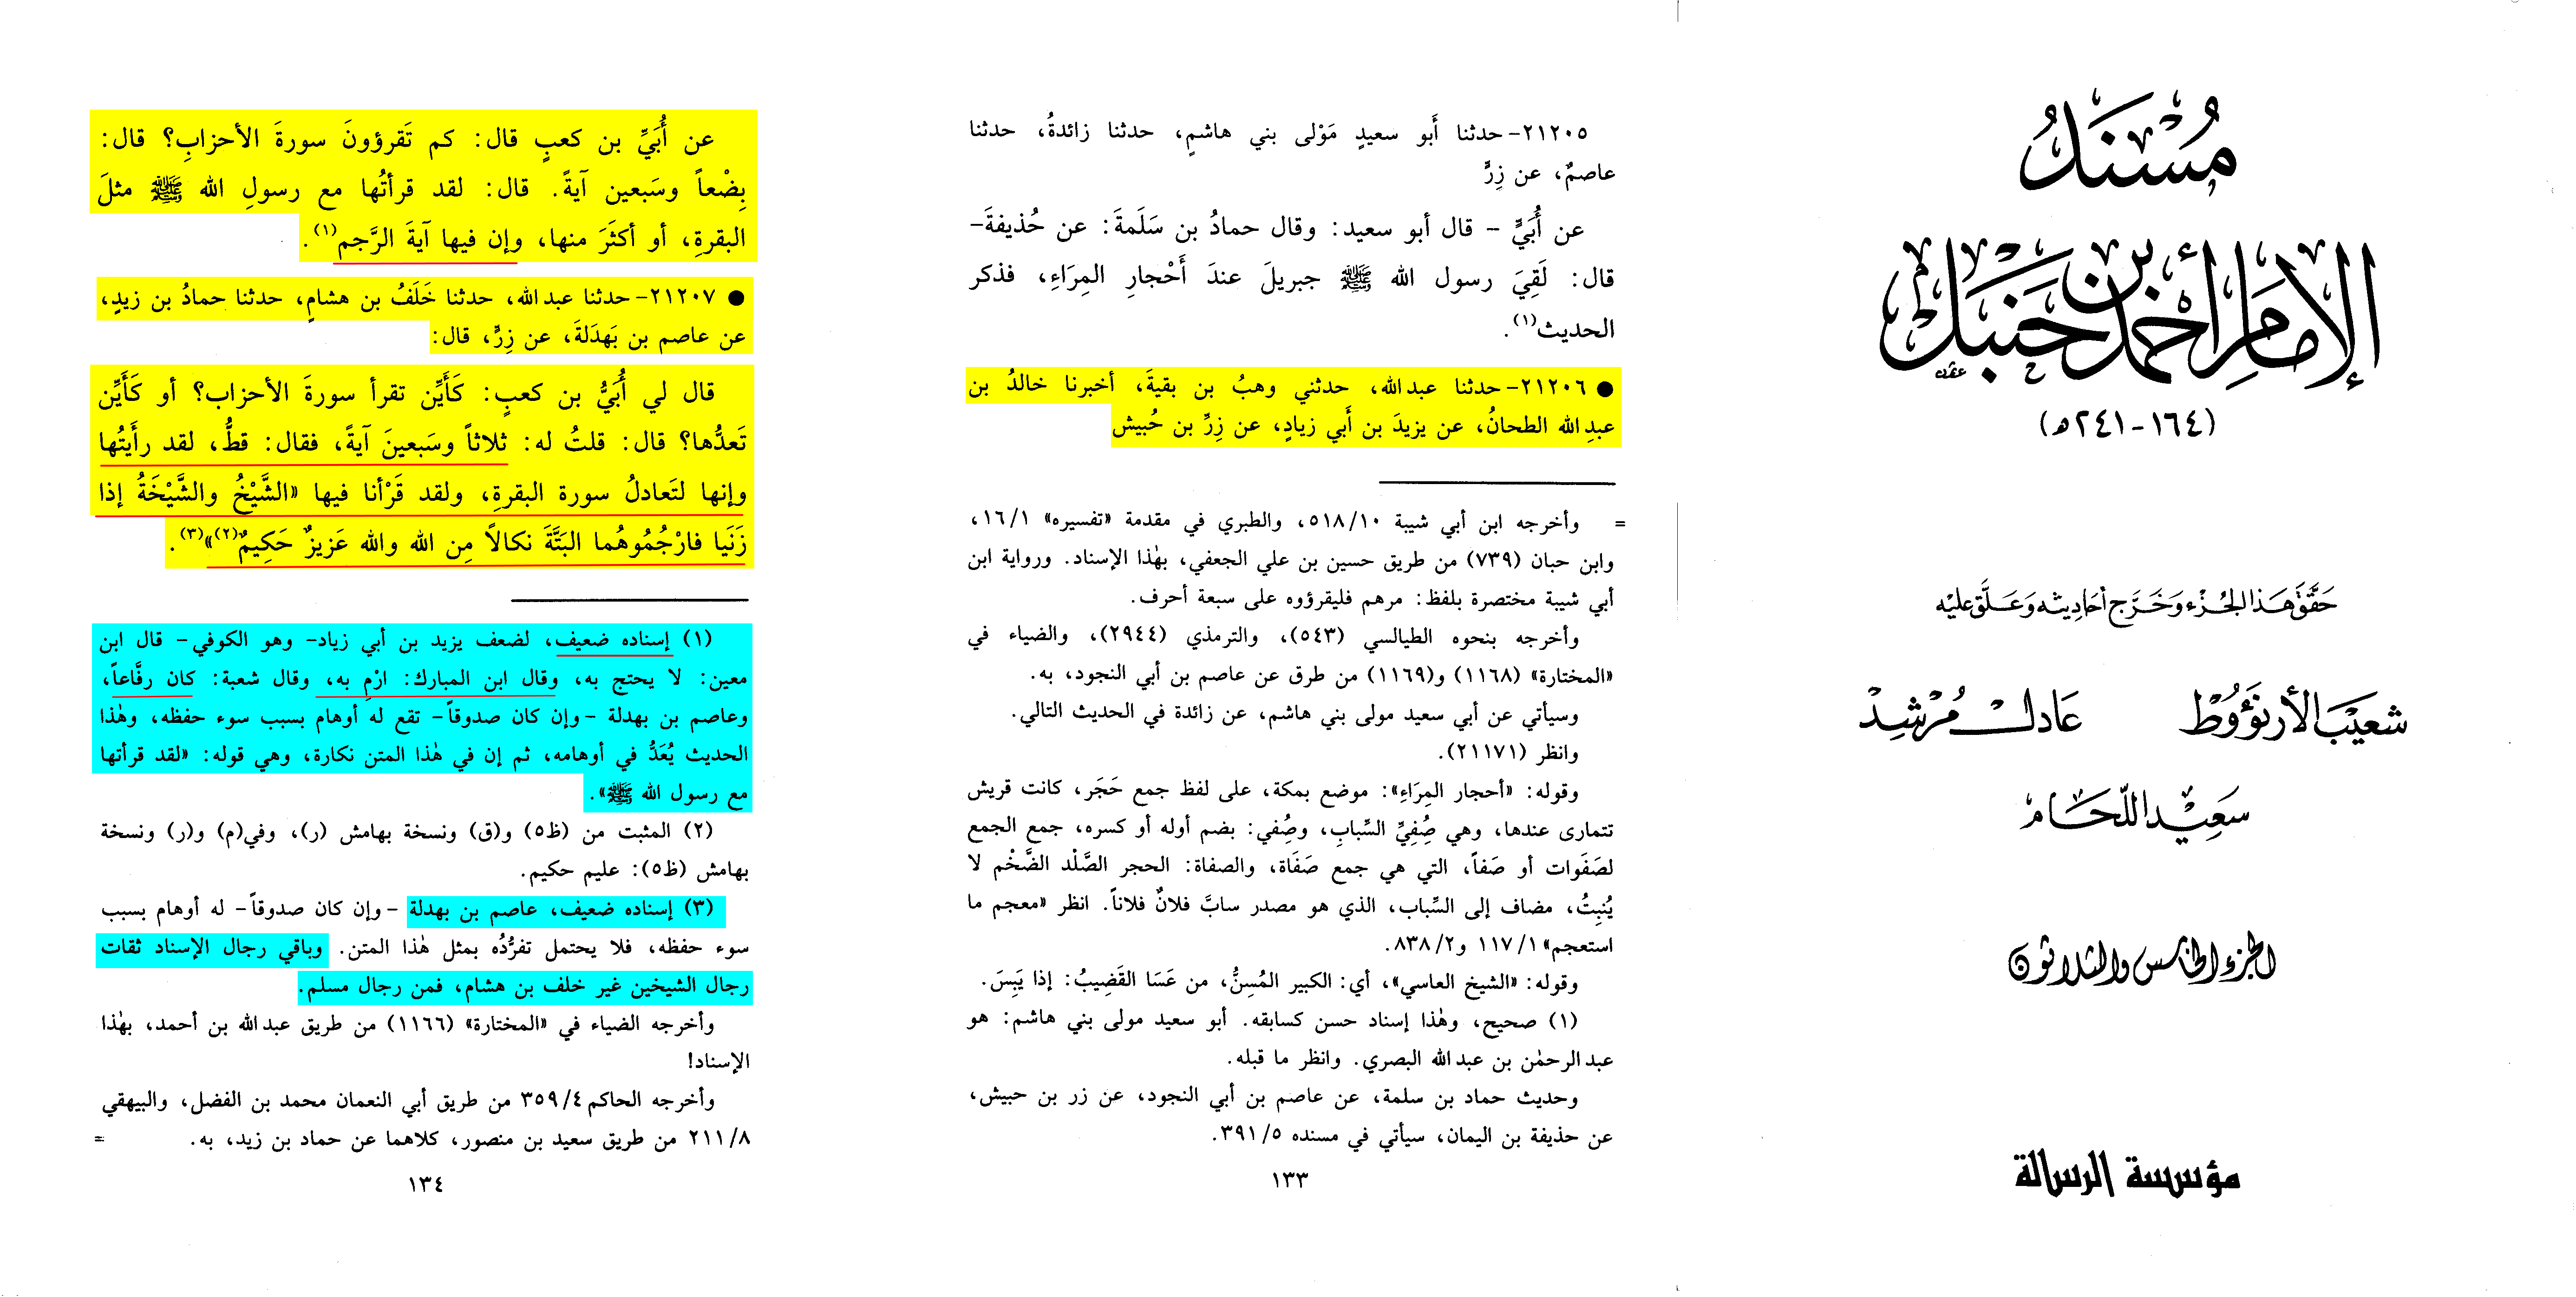 مُسْنَدُ
الإِمَامِ أَحْمَد بْن حَنْبَل
(١٦٤-٢٤١ه)
حَقَّقَ هَذَا الجُزْء وَخَرَّج أحَادِيثه وَعَلَّق عَلَيْه
شعَيْبَ الأرنَؤُوط عَادل مُرْشِد
سَعِيْد اللّحَّام
الجزء الخامس والثلاثون
مؤسسة الرسالة
٢١٢٠٥- حدثنا أَبو سعيدٍ مَوْلى بني هاشمٍ، حدثنا زائدةُ، حدثنا
عاصمٌ، عن زِرٍّ
عن أُبَيٍّ - قال أبو سعيد: وقال حمادُ بن سَلَمةَ: عن حُذيفةَ-
قال: لَقِيَ رسول الله ﷺ جبريلَ عندَ أَحْجارِ المِرَاءِ، فذكر
الحديث(١).
● ٢١٢٠٦- حدثنا عبد الله، حدثني وهبُ بن بقيةَ، أخبرنا خالدُ بن
عبدِ الله الطحانُ، عن يزيدَ بن أَبي زيادٍ، عن زِرِّ بن حُبيش
= وأخرجه ابن أبي شيبة ٥١٨/١٠، والطبري في مقدمة «تفسيره» ١٦/١،
وابن حبان (٧٣٩) من طريق حسين بن علي الجعفي، بهٰذا الإسناد. ورواية ابن
أبي شيبة مختصرة بلفظ: مرهم فليقرؤوه على سبعة أحرف.
وأخرجه بنحوه الطيالسي (٥٤٣)، والترمذي (٢٩٤٤)، والضياء في
«المختارة» (١١٦٨) و(١١٦٩) من طرق عن عاصم بن أبي النجود، به.
وسيأتي عن أبي سعيد مولى بني هاشم، عن زائدة في الحديث التالي.
وانظر (٢١١٧١).
وقوله: «أحجار المِرَاءِ»: موضع بمكة، على لفظ جمع حَجَر، كانت قريش
تتمارى عندها، وهي صُِفِيِّ السِّبابِ، وصُِفي: بضم أوله أو كسره، جمع الجمع
لصَفَوات أو صَفاً، التي هي جمع صَفَاة، والصفاة: الحجر الصَّلْد الضَّخْم لا
يُنبِتُ، مضاف إلى السِّباب، الذي هو مصدر سابَّ فلانٌ فلاناً. انظر «معجم ما
استعجم» ١١٧/١ و٨٣٨/٢.
وقوله: «الشيخ العاسي»، أي: الكبير المُسِنُّ، من عَسَا القَضِيبُ: إذا يَبِسَ.
(١) صحيح، وهٰذا إسناد حسن كسابقه. أبو سعيد مولى بني هاشم: هو
عبد الرحمٰن بن عبد الله البصري. وانظر ما قبله.
وحديث حماد بن سلمة، عن عاصم بن أبي النجود، عن زر بن حبيش،
عن حذيفة بن اليمان، سيأتي في مسنده ٣٩١/٥.
١٣٣
عن أُبَيِّ بن كعبٍ قال: كم تَقرؤونَ سورةَ الأحزابِ؟ قال:
بِضْعاً وسَبعين آيةً. قال: لقد قرأتُها مع رسولِ الله ﷺ مثلَ
البقرةِ، أو أكثَرَ منها، وإن فيها آيةَ الرَّجم(١).
● ٢١٢٠٧- حدثنا عبد الله، حدثنا خَلَفُ بن هشامٍ، حدثنا حمادُ بن زيدٍ،
عن عاصم بن بَهدَلةَ، عن زِرٍّ، قال:
قال لي أُبَيُّ بن كعبٍ: كَأَيِّن تقرأ سورةَ الأحزاب؟ أو كَأَيِّن
تَعدُّها؟ قال: قلتُ له: ثلاثاً وسَبعينَ آيةً، فقال: قطُّ، لقد رأَيتُها
وإنها لتَعادلُ سورة البقرةِ، ولقد قَرْأنا فيها «الشَّيْخُ والشَّيْخَةُ إذا
زَنَيا فارْجُمُوهُما البَتَّةَ نكالاً مِن الله والله عَزيزٌ حَكِيمٌ(٢)»(٣).
(١) إسناده ضعيف، لضعف يزيد بن أبي زياد- وهو الكوفي- قال ابن
معين: لا يحتج به، وقال ابن المبارك: ارْمِ به، وقال شعبة: كان رفَّاعاً،
وعاصم بن بهدلة -وإن كان صدوقاً- تقع له أوهام بسبب سوء حفظه، وهٰذا
الحديث يُعَدُّ في أوهامه، ثم إن في هٰذا المتن نكارة، وهي قوله: «لقد قرأتها
مع رسول الله ﷺ».
(٢) المثبت من (ظ٥) و(ق) ونسخة بهامش (ر)، وفي(م) و(ر) ونسخة
بهامش (ظ٥): عليم حكيم.
(٣) إسناده ضعيف، عاصم بن بهدلة -وإن كان صدوقاً- له أوهام بسبب
سوء حفظه، فلا يحتمل تفرُّدُه بمثل هٰذا المتن. وباقي رجال الإسناد ثقات
رجال الشيخين غير خلف بن هشام، فمن رجال مسلم.
وأخرجه الضياء في «المختارة» (١١٦٦) من طريق عبد الله بن أحمد، بهٰذا
الإسناد!
وأخرجه الحاكم ٣٥٩/٤ من طريق أبي النعمان محمد بن الفضل، والبيهقي
٢١١/٨ من طريق سعيد بن منصور، كلاهما عن حماد بن زيد، به. =
١٣٤